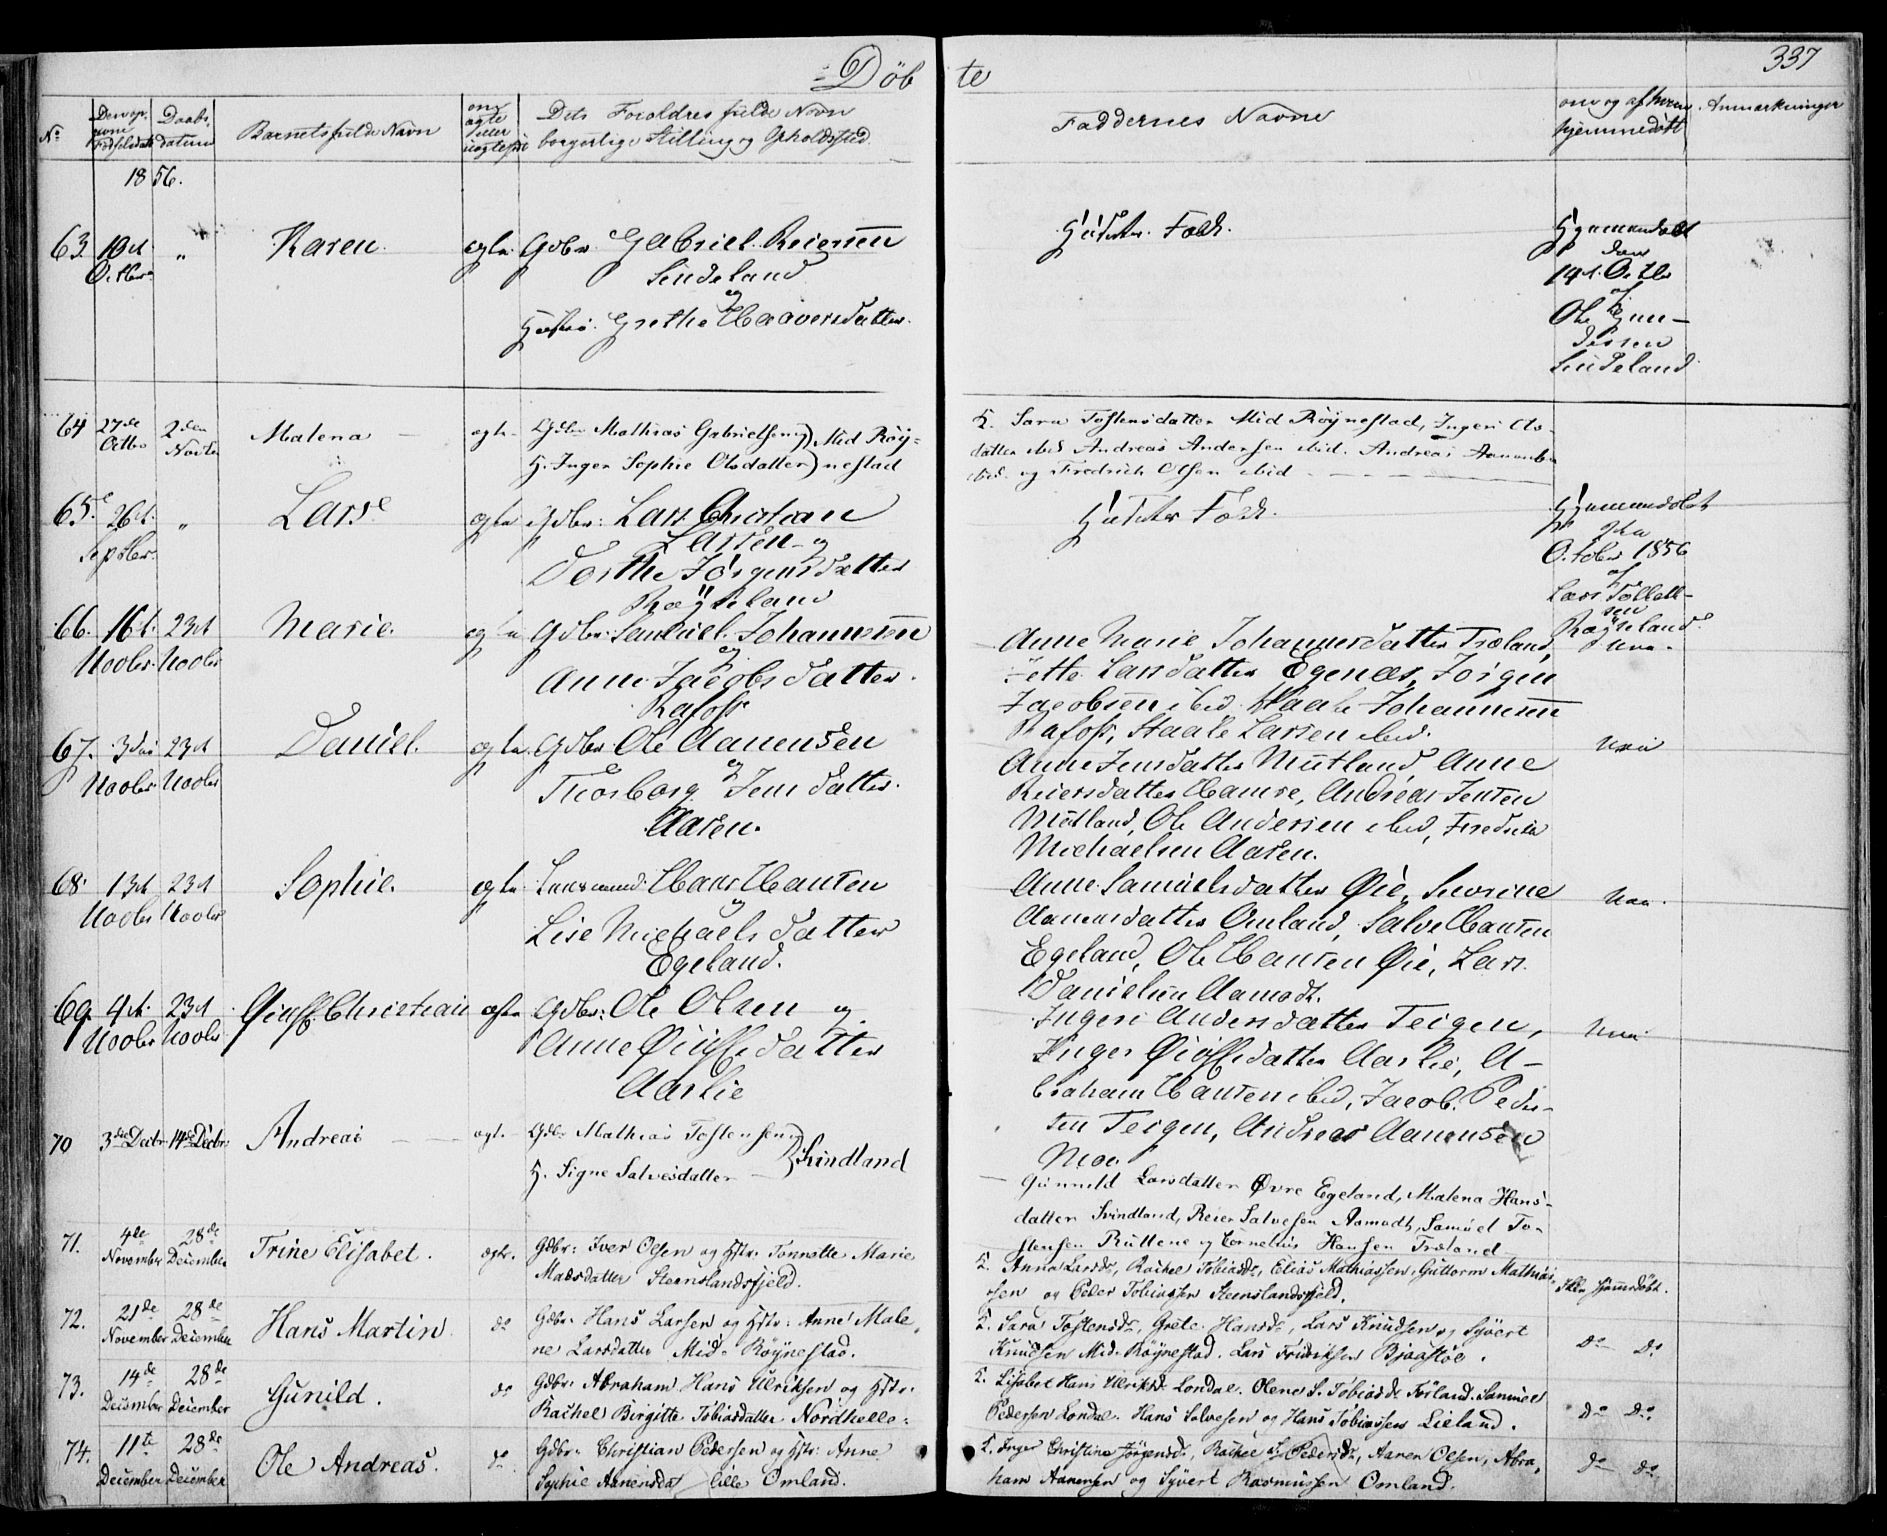 Døb te
337
No
Barnets fulde Navn
Dets Forældres fulde Navn
borgerlige Stilling og Opholdssted.
Faddernes Navne
om og af hvem
hjemmedøbt
Anmærkninger
1856.
63. 10d Octbr. " Karen. ægte Gdbr. Gabriel Reiersen
Sindeland
og
Grethe Haaversdatter.
14d. Octbr
af
Ole Gun-
dersen
Sindeland
64 27de Octbr 2den Novbr Malena ægte Mathias Gabrielsen og Mid Røy-
H. Inger Sophie Olsdatter nestad
F. Sara Tostensdatter Mid Røynestad, Ingeri Ols-
datter ibid Andreas Andersen ibid. Andreas Aanensen
ibid. og Fredrich Olsen ibid
65. 26d. Septbr. " Lars ægte Gdbr: Lars Christian
Larsen og
Dorthe Jørgensdatter
Røyseland
October 1856
af
Lars Tollell-
sen
Røyseland.
66. 16d. Novbr. 23d Novbr Marie. ægte Gdbr. Samuel Johannesen
og
Anne Jacobsdatter.
Rafoss
Anne Marie Johannesdatter Træland,
Jette Larsdatter Egenæs, Jørgen
Jacobsen ibid. Johannesen
Rafoss, Staale Larsen ibid.
67. 3die Novbr 23d Novbr Daniel. ægte Gdbr Ole Aanensen
og
Thorborg Jensdatter.
Aasen.
Anne Jensdatter Mitland Anne
Reiersdatter Hamre, Andreas Jensen
Mitland, Ole Andersen ibid, Fredrik
Michaelsen Aasen.
68. 13d Novbr 23d Novbr Sophie. ægte Hans Hansen
og
Lise Michaelsdatter
Egeland.
Anne Samuelsdatter Øie, Severine
Aanensdatter Omland, Salve Hansen
Egeland, Ole Hansen Øie, Lars
Danielsen Aamodt.
69. 4d. Novbr 23d Novbr Christian ægte Gdbr: Ole Olsen og
Anne
Aaslie
Ingeri Andersdatter Teigen,
Inger Aaslie, A-
braham Hansen ibid, Jacob Peder-
sen Teigen, Andreas Aanensen
Moe.
70 3die Decbr 14de Decbr: Andreas ægte. Gdbr Mathias Tostensen og
H. Signe Salvesdatter Svindland
Gunnild Larsdatter Øvre Egeland, Malena Hans-
datter Svindland, Reier Salvesen Aamodt, Samuel To-
stensen Ruttene og Cornelius Hansen Træland
71. 4de November 28de December Trine Elisabet. ægte. Gdbr: Iver Olsen og Hstr: Tonnette Marie
Madsdatter Steenslandsfjeld.
F. Anna Larsd., Rachel Tobiasd., Elias Mathiassen, Guttorm Mathias-
sen og Peder Tobiassen Stenslandsfjeld.
Ikke hjemmedøbt.
72. 21de November 28de December Hans Martin. do Gdbr: Hans Larsen og Hstr: Anne Male-
ne Larsdatter Mid-Røynestad.
F. Sara Tostensd., Grete Hansd., Lars Knudsen og Syvert
Knudsen Mid-Røynestad. Lars Fridriksen Bjaastøl.
do do
73. 14de December 28de December Gunild. do Gdbr: Abraham Hans Ulriksen og Hstr:
Rachel Birgitte Tobiasdatter
F. Lisabet Hans Ulriksd. Londal. Olene S. Tobiasd. Førland. Samuel
Pedersen Londal. Hans Salvesen og Hans Tobiassen Lieland.
do do
74. 11te December 28de December Ole Andreas. do Gdbr: Christian Pedersen og Hstr: Anne
Sophie Aanensdat lille Omland.
F. Inger Christine Jørgensd., Rachel Pedersd., Aanen Olsen, Abra-
ham Aanensen og Syvert Rasmussen Omland.
do do